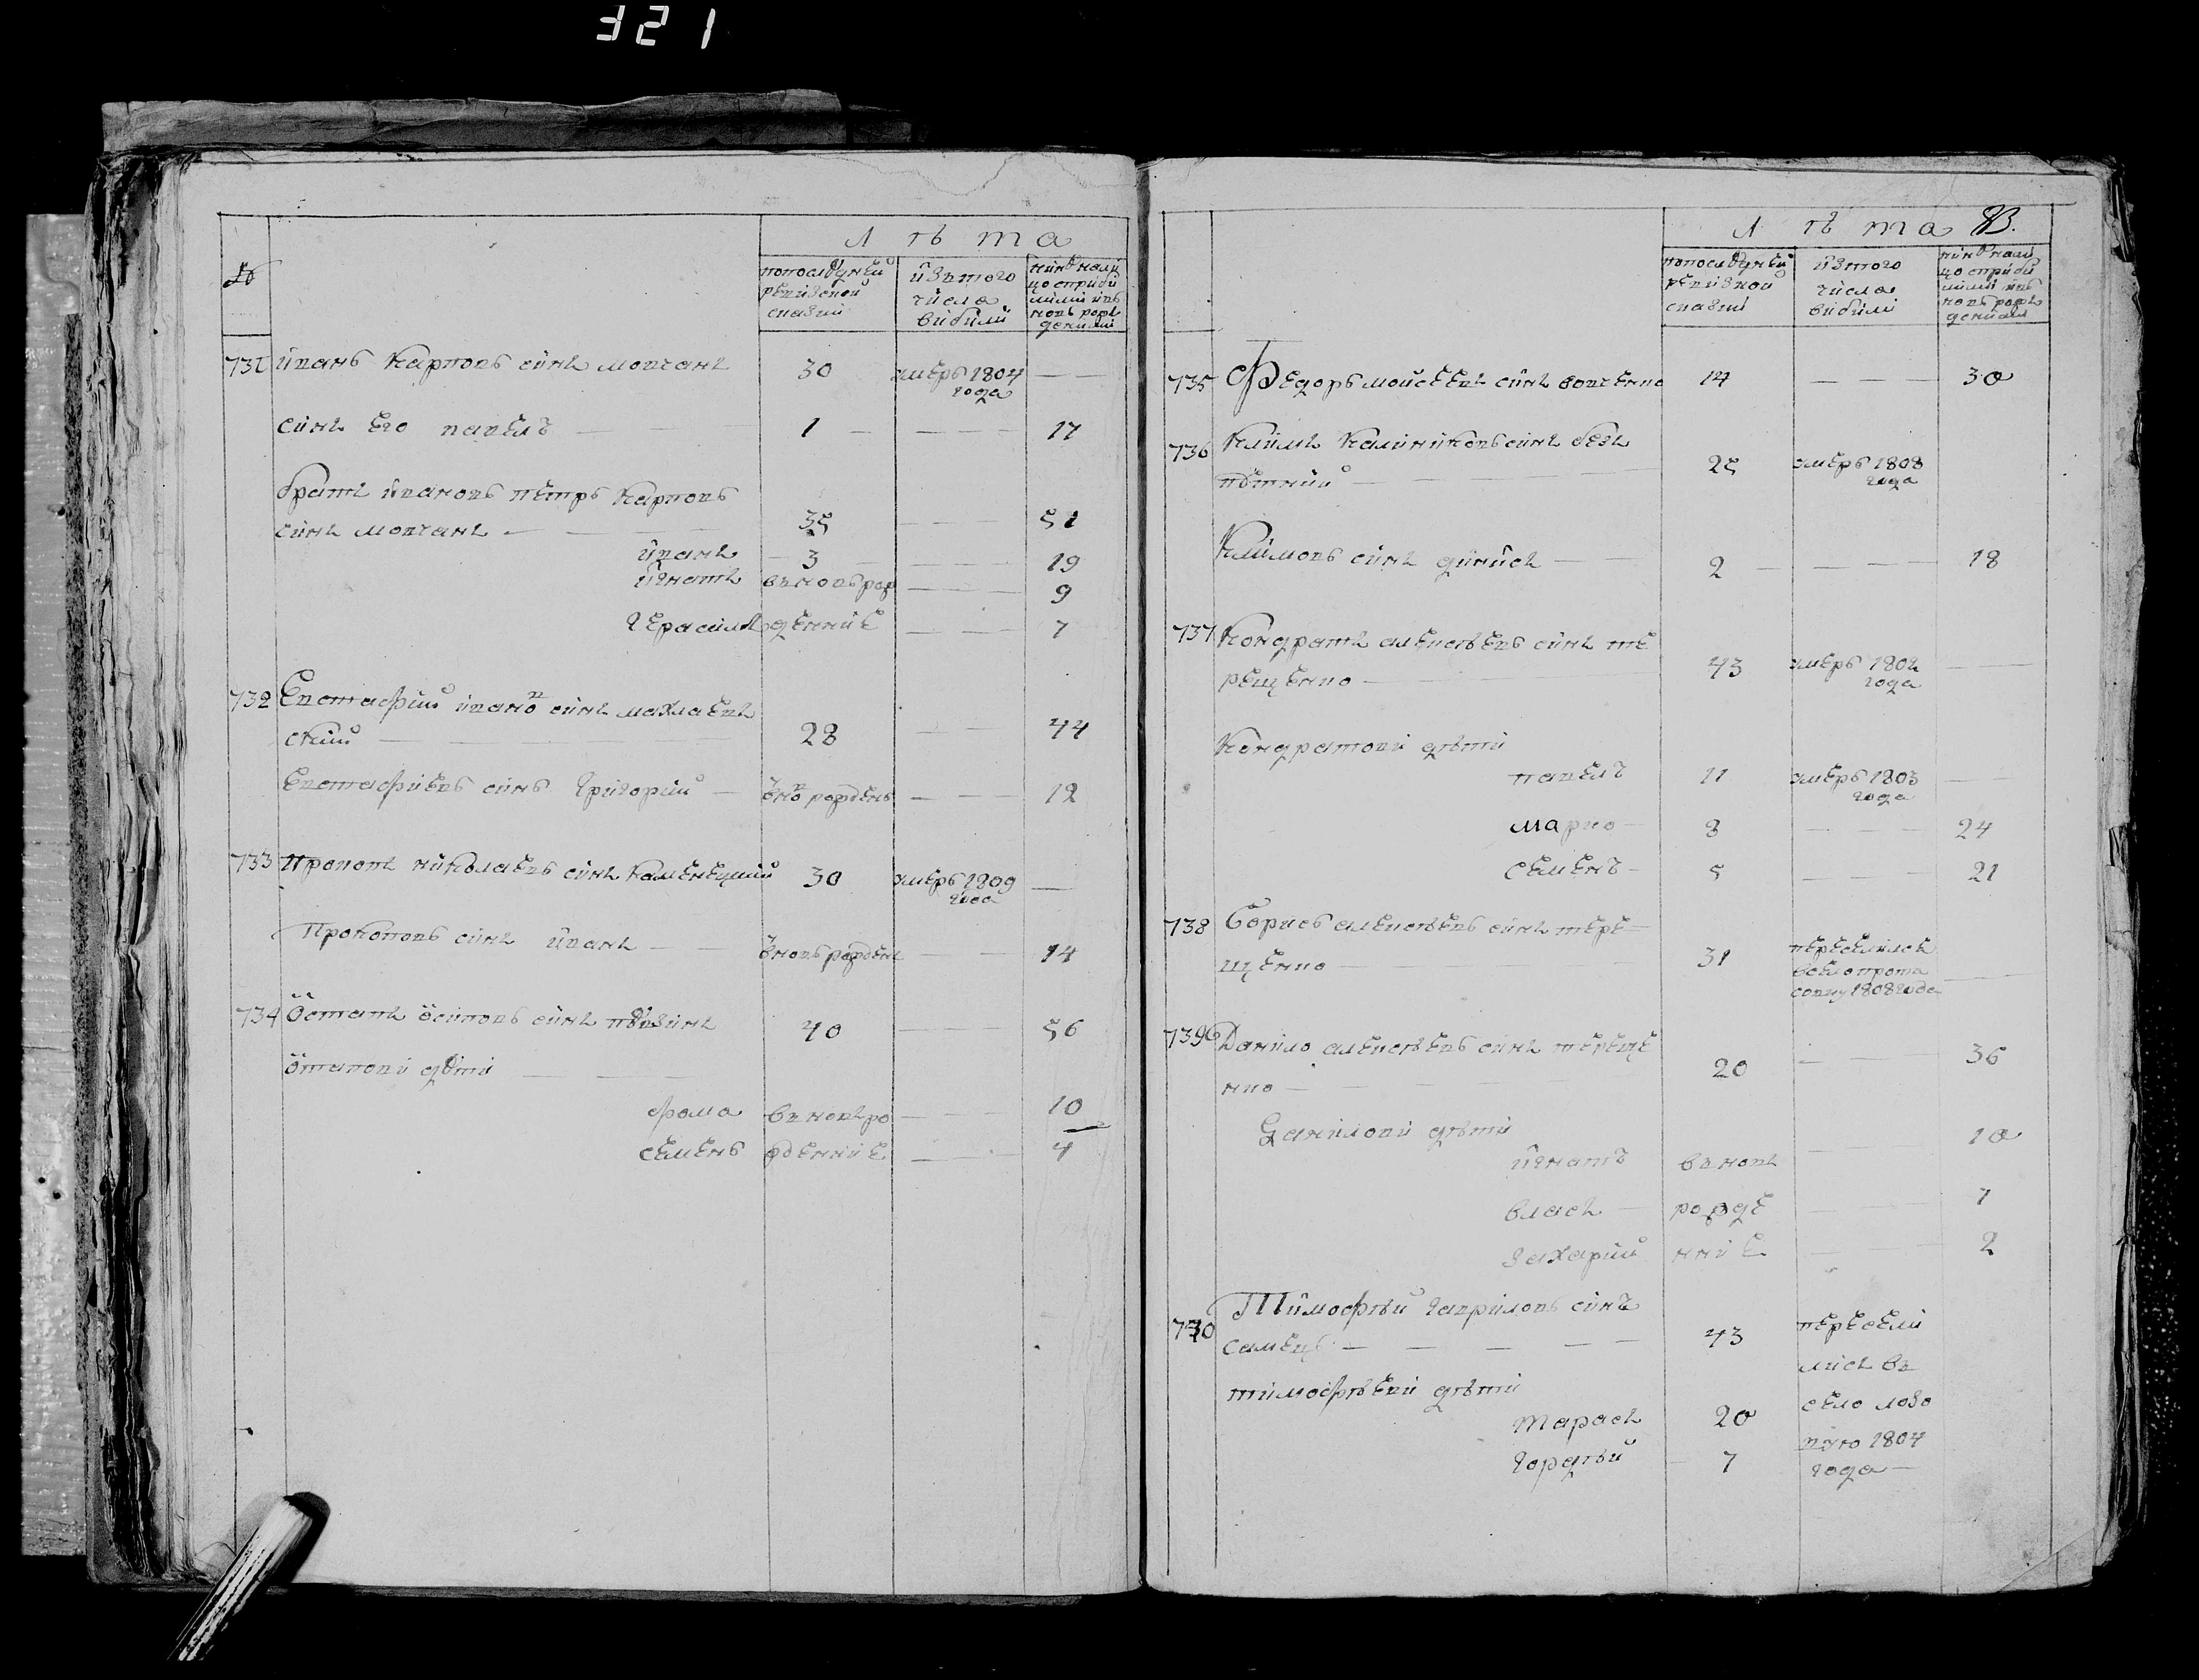 321
№
Л ѣ т а
попоследуней
ревизской
сказки
изътого
числа
вибили
нине нали
цо сприби
лими ивъ
новь рож
денними
731 иванъ Карповъ синъ мовчанъ 30 умеръ 1804 — —
года
синъ его павелъ — — 1 — — — — 17
братъ ивановъ петръ Карповъ
синъ мовчанъ — — — 35 — — 51
иванъ — 3 — — — 19
игнатъ въновърож — — — 9
герасимъ денние — — 7
732 Евстафий ивановъ синъ махлаевъ
ский — — — 28 — — 44
Евстафиевъ синъ Григорий — вновъ рожденъ — — — 12
733 Прокопъ николаевъ синъ Каменецкий 30 умеръ 1809 —
года
Прокоповъ синъ иванъ — — вновь рожденъ — — 14
734 Остапъ осиповъ синъ 40 — — 56
Отапови дѣти — — —
фома въновьро — — — 10
семенъ жденние — — — 4
Л ѣ т а
попоследуней
ревизкои
сказки
изтого
числа
вибили
нине нали
цо сприби
лими ивъ
новъ рож
денними
735 Федоръ мойсеевъ синъ вовченко 14 — — — 30
736 Климъ Калиниковъ синъ безъ
петний — — — — 25 умеръ 1808
года
Климовъ синъ динисъ — — 2 — — — — 18
737 Кондратъ алексѣевъ синъ те
рещенко — 43 умеръ 1802 — —
года
Кондратови дѣти
павелъ 11 умеръ 1803 —
года
марко — 8 — — — 24
семенъ — 5 — — — 21
738 Борисъ алексѣевъ синъ тере
щенко — 31 переселился
восело прота
совку 1808 года
739 Данило алексѣевъ синъ тереще
нко — — — — 20 — — 36
Данилови дѣти
игнатъ въновь — — 10
власъ — рожде — — 7
захарий нние — — 2
730 Тимофѣй гавриловъ синъ
самецъ — — — — 43 пересели
лись въ
тимофѣеви дѣти
тарасъ 20 село лозо
гордѣй — 7 вую 1804
года —